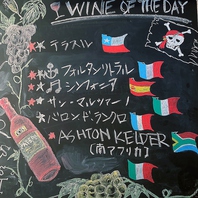 WINE OF THE DAY
テラスル
フォルタンリトラル
シンフォニア
サン・マルツァーノ
バロンドランクロ
ASHTON KELDER
(南アフリカ)